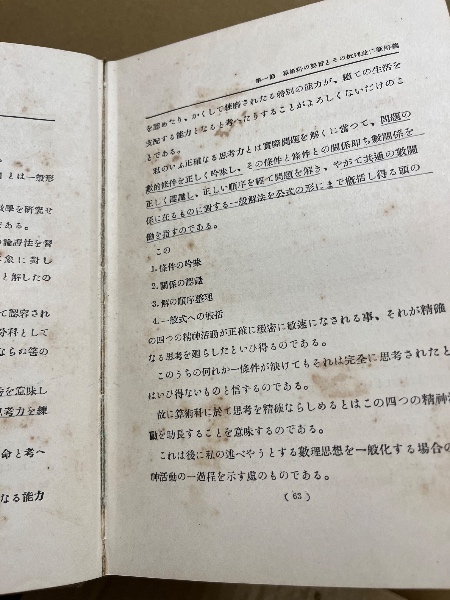 第一節 算術科の本質とその教授及び練習觀
を認めたり、かくして練磨されたる特別の能力が、總ての生活を
支配する能力となると考へたりすることがよろしくないだけのこ
私のいふ正確なる思考力とは實際問題を解くに當つて、問題の
數的條件を正しく吟味し、その條件と條件との關係即ち數關係を
正しく認識し、正しい順序を經て問題を解き、やがて共通の數關
係に在るものに對する一般解法を公式の形にまで概括し得る頭の
働を指すのである。
この
1.條件の吟味
2.關係の認識
3.解の順序整理
4.一般式への概括
の四つの精神活動が正確に緻密に敏速になされる事、それが精確
なる思考を廻らしたといひ得るのである。
このうちの何れか一條件が缺けてもそれは完全に思考されたと
はいひ得ないものと信ずるのである。
故に算術科に於て思考を精確ならしめるとはこの四つの精神活
動を助長することを意味するのである。
これは後に私の述べやうとする數理思想を一般化する場合の
神活動の一過程を示す處のものである。
( 63 )
」とは一般形
數學を研究せ
である。
論證法を習
象に對し
と解したの
て認容され
分科として
ならぬ筈の
を意味し
思考力を練
命と考へ
なる能力